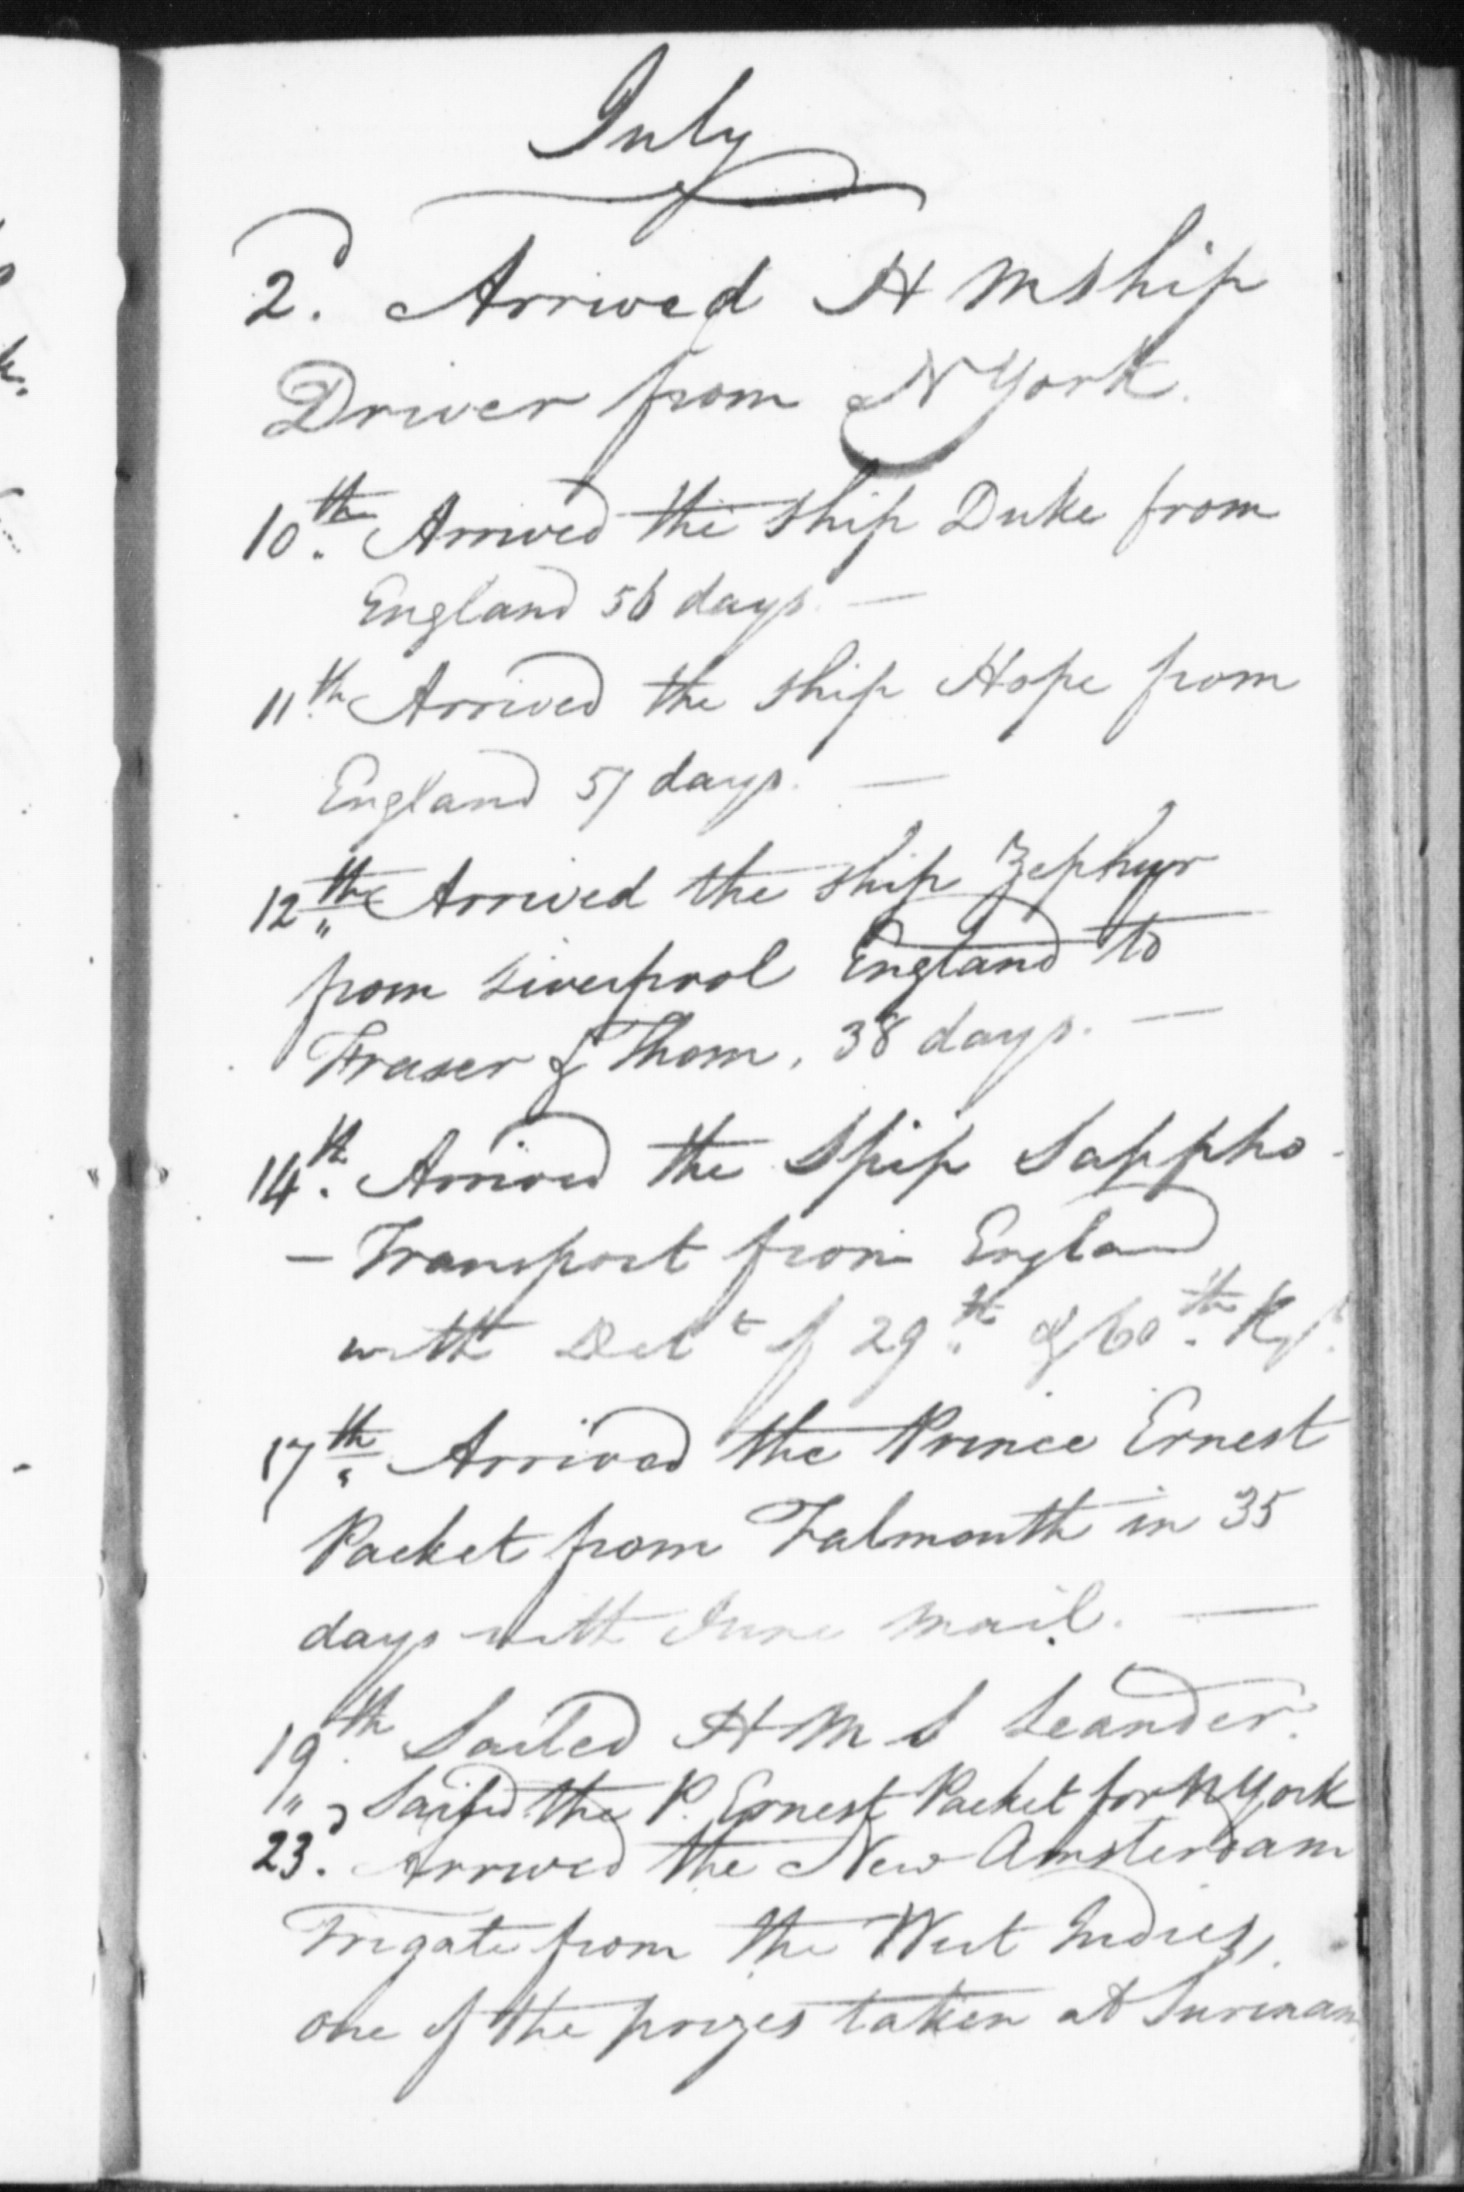 July
2d. Arrived H M Ship
Driver from N York.
10th. Arrived the ship Duke from
England 56 days. —
11th Arrived the ship Hope from
England 57 days. —
12th Arrived the ship Zephyr
from Liverpool England to
Fraser & Thom, 38 days. —
14th. Arrived the Ship Sappho
— Transport from England
with Det t of 29th & 60th Rgt.
17th Arrived the Prince Ernest
Packet from Falmouth in 35
days with June mail. —
19th Sailed H M S Leander.
" Sailed the P. Ernest Packet for N York
23d. Arrived the New Amsterdam
Frigate from the West Indies,
one of the prizes taken at Surinam